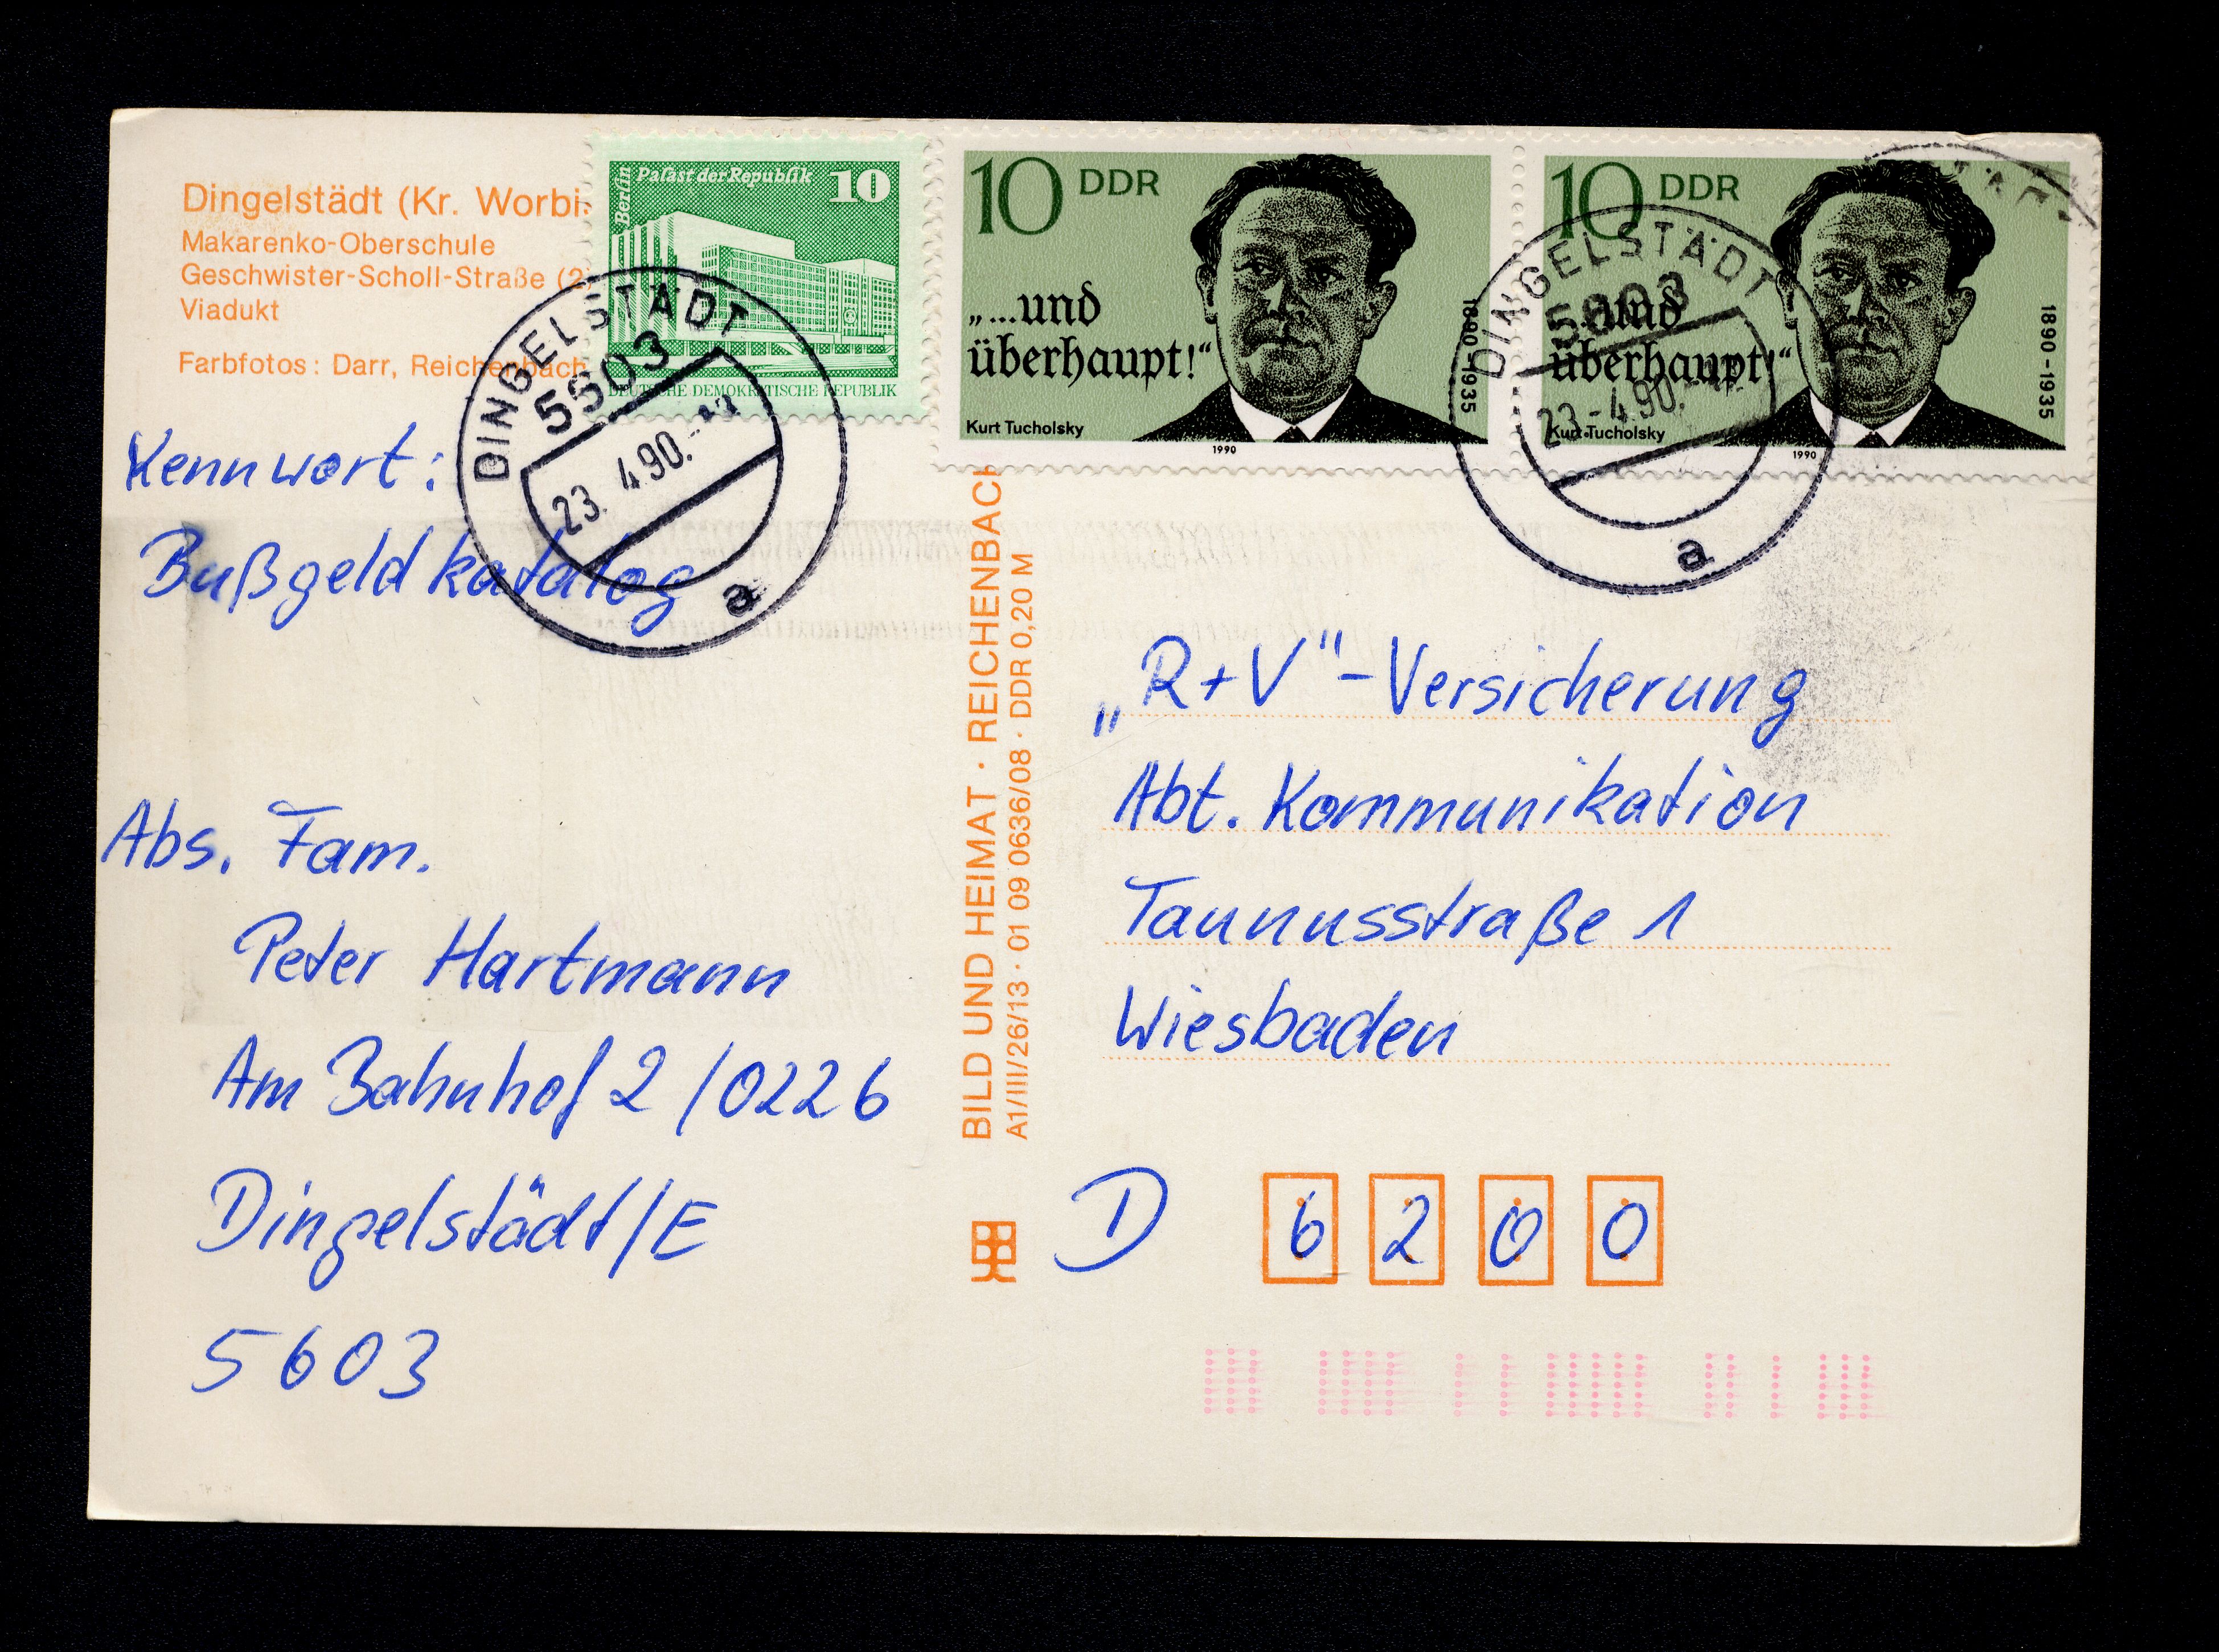 Dingelstädt (Kr. Worbi
Makarenko-Oberschule
Geschwister-Scholl-Straße (2
Viadukt
Farbfotos: Darr, Reichenbach
Berlin
Palast der Republik 10
DEUTSCHE DEMOKRATISCHE REPUBLIK
10 DDR
„...und
überhaupt!“
Kurt Tucholsky
1890-1935
1990
10 DDR
„...und
überhaupt!“
Kurt Tucholsky
1890-1935
1990
DINGELSTÄDT
5603
23. 4.90.
a
DINGELSTÄDT
5603
23.-4.90.
a
Kennwort:
Bußgeldkatalog
Abs. Fam.
Peter Hartmann
Am Bahnhof 2/0226
Dingelstädt/E
5603
BILD UND HEIMAT · REICHENBACH
A1/III/26/13 · 01 09 0636/08 · DDR 0,20 M
„R+V"-Versicherung
Abt. Kommunikation
Taunusstraße 1
Wiesbaden
D 6200